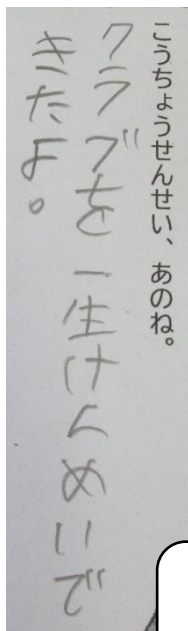 こうちょうせんせい、あのね。
クラブを一生けんめいで
きたよ。